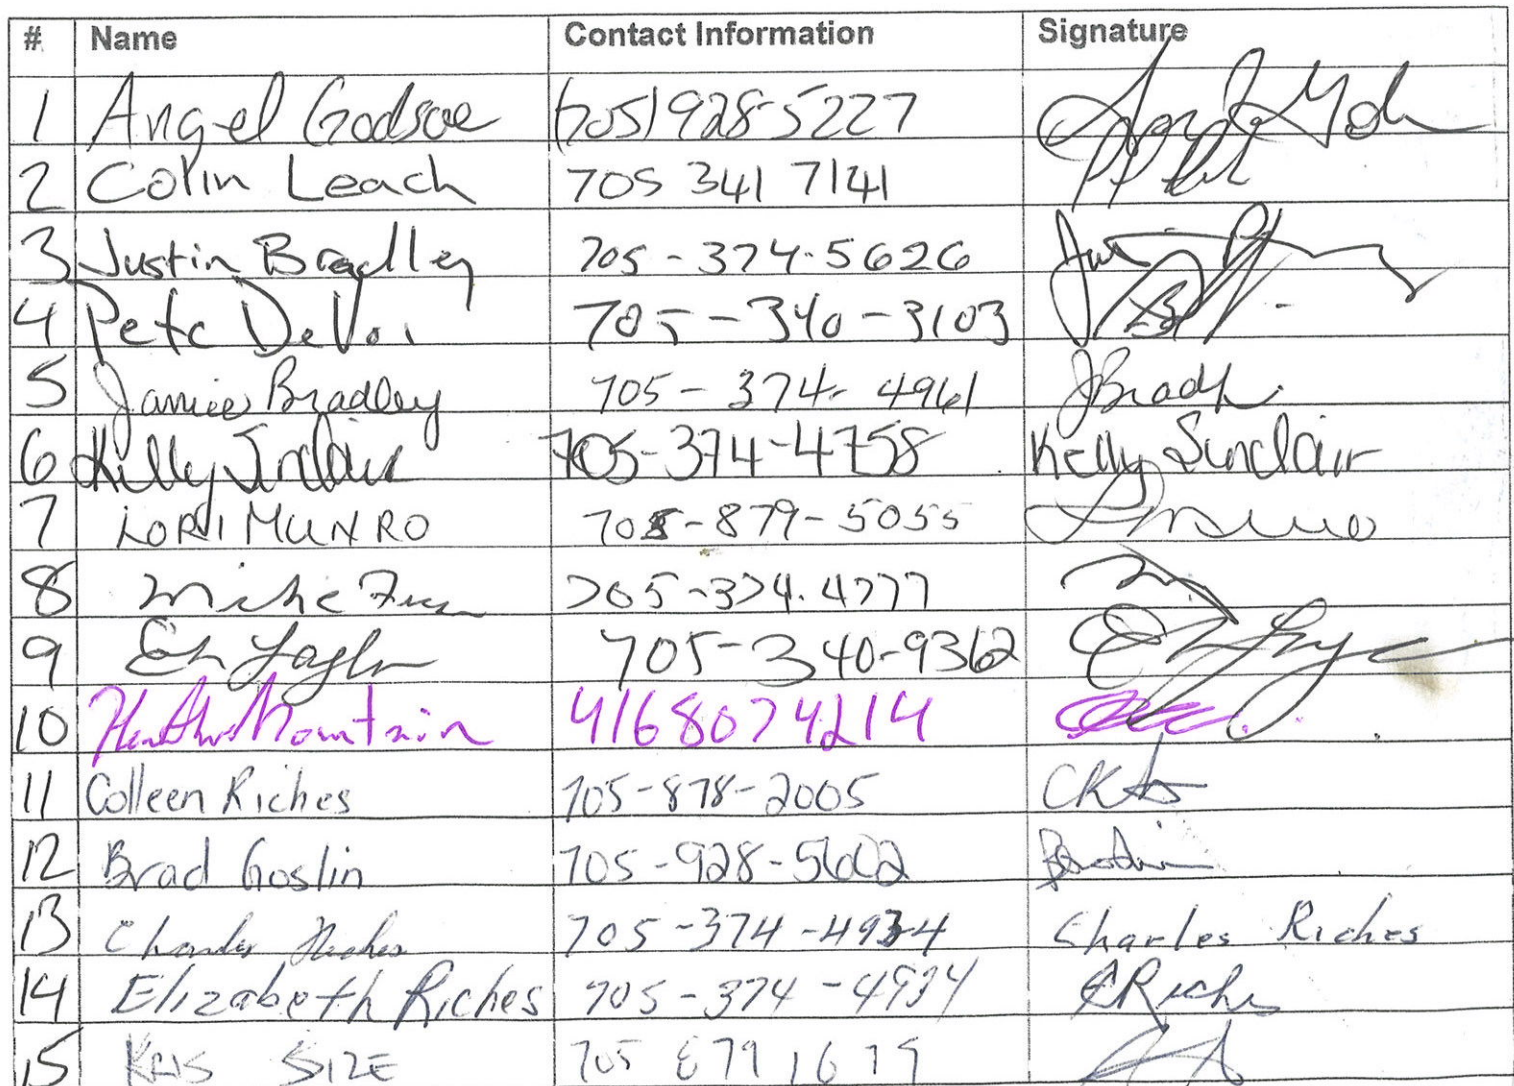 # Name Contact Information Signature
1 Angel Godsoe (705)928-5227
2 Colin Leach 705 341 7141
3 Justin Bradley 705-374-5626
4 Pete DeVoi 705-340-3103
5 Janice Bradley 705-374-4961 JBradl
6 Kelly Sinclair 705-374-4758 Kelly Sinclair
7 LORI MUNRO 705-879-5055
8 Mike 705-374.4777
9 705-340-9362
10 Heather Mountain 4168074214
11 Colleen Riches 705-878-2005
12 Brad Goslin 705-928-5602
13 Charles Riches 705-374-4934 Charles Riches
14 Elizabeth Riches 705-374-4934 ERiches
15 KRIS SIZE 705 879 1679